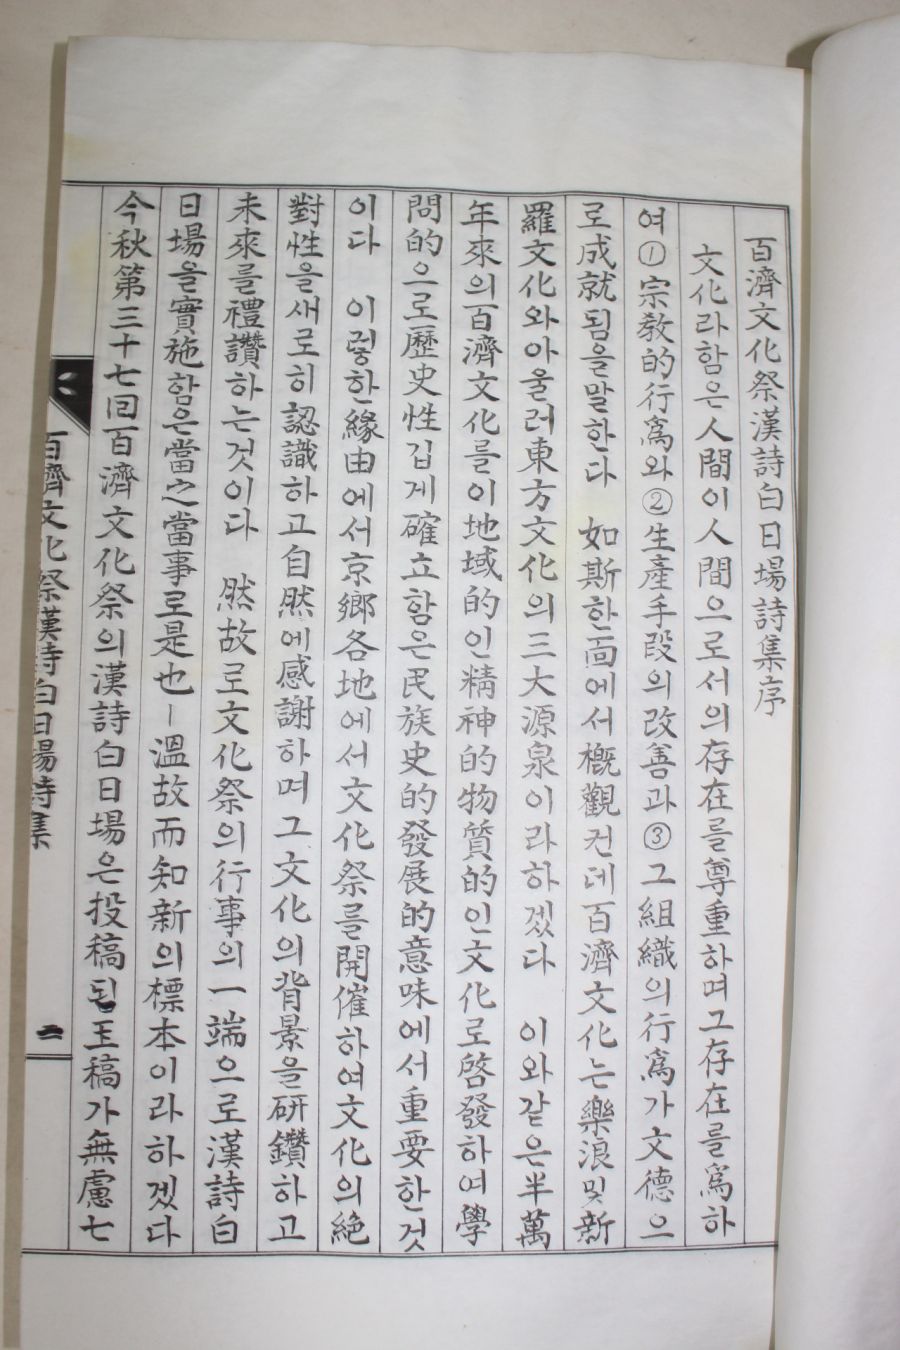 百濟文化祭漢詩白日場詩集序
文化라함은人間이人間으로서의存在를尊重하며그存在를爲하
여①宗敎的行爲와②生產手段의改善과③그組織의行爲가文德으
로成就됨을말한다 如斯한面에서槪觀컨데百濟文化는樂浪및新
羅文化와아울러東方文化의三大源泉이라하겠다 이와같은半萬
年來의百濟文化를이地域的인精神的物質的인文化로啓發하여學
問的으로歷史性깁게確立함은民族史的發展的意味에서重要한것
이다 이렇한緣由에서京鄕各地에서文化祭를開催하여文化의絶
對性을새로히認識하고自然에感謝하며그文化의背景을硏鑽하고
未來를禮讚하는것이다 然故로文化祭의行事의一端으로漢詩白
日場을實施함은當之當事로是也ㅣ溫故而知新의標本이라하겠다
今秋第三十七回百濟文化祭의漢詩白日場은投稿된玉稿가無慮七
百濟文化祭漢詩白日場詩集 二